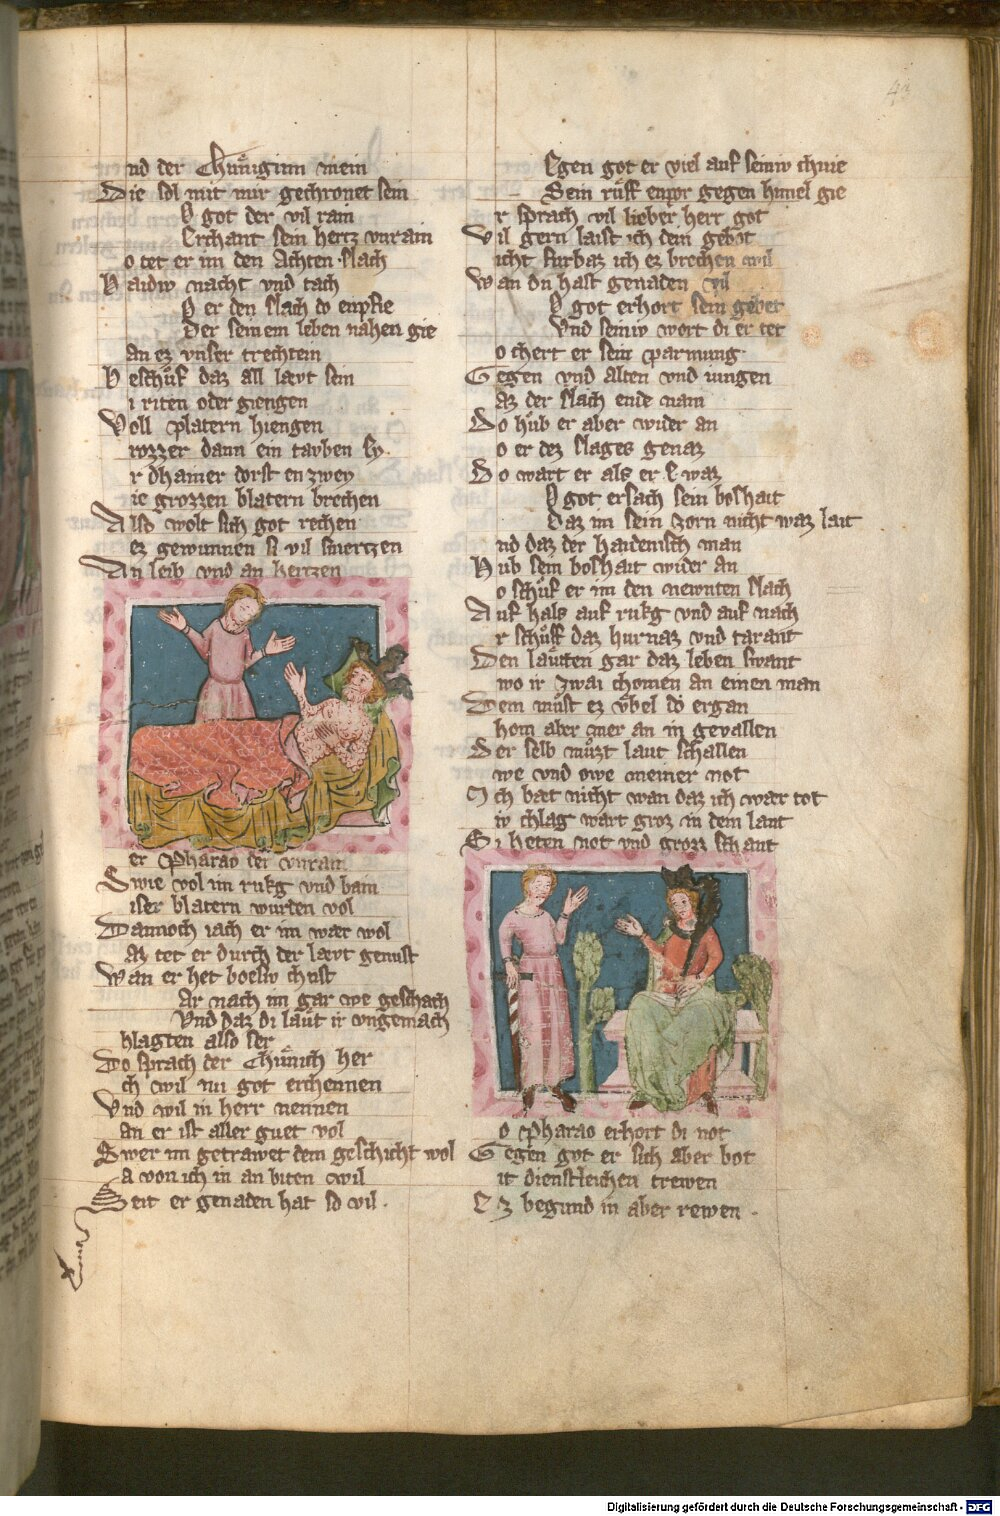 43
nd der Chuͤniginn mein
Die sol mit mir gechronet sein
O got der vil rain
Erchant sein hertz vnrain
o tet er im den Achten slach
Paidiv nacht vnd tach
O er den slach do enpfie
Der seinem leben nahen gie
an ez vnser trechtein
Peschuͦf daz all laevt sein
i riten oder giengen
Voll platern hiengen
rozzer dann ein tavben Ey.
r dhainer dorst en zwey
ie grozzen blatern brechen
Also wolt sich got rechen
ez gewunnen si vil smertzen
An leib vnd an hertzen
er Pharao der vnrain
Swie vol im rukg vnd bain
iser blatern wurden vol
Dannoch iach er im waer wol
Az tet er durch der laevt genust
Wan er het boesiv chust
Ar nach im gar we geschach
Vnd daz di laͤut ir vngemach
hlagten also ser
Do sprach der Chuͤnich her
ch wil nu got erchennen
Vnd wil in herr nennen
an er ist aller guet vol
Swer im getrawet dem geschicht wol
a von ich in an biten wil
Seit er genaden hat so vil.
Egen got er viel auf seiniv chnie
Sein ruͤff enpor gegen himel gie
r sprach vil lieber herr got
Vil gern laist ich dein gebot
icht furbaz ich ez brechen wil
Wan du hast genaden vil
O got erhort sein geber
Vnd seiniv wort di er tet
o chert er sein parmung
Gegen vnd alten vnd iungen
az der slach ende nam
Do huͦb er aber wider an
o er dez slages genaz
Do wart er als er E waz
O got ersach sein boshait
Daz im sein zorn nicht waz lait
nd daz der haidenisch man
Hub sein boshait wider an
o schuͦf er im den newnten slach
Auf hals auf rukg vnd auf nach
r schuͦff daz hurnaz vnd tarant
Den laͤuten gar daz leben swant
wo ir zwai chomen an einen man
Dem muͦst ez vͤbel do ergan
hom aber mer an in gevallen
Der selb muͤzt laut schallen
we vnd owe meiner not
Ich baet nicht wan daz ich waer tot
iv chlag wart groz in dem lant
Si heten not vnd grozz schant
o Pharao erhort di not
Gegen got er sich aber bot
it dienstleichen trewen
Ez begund in aber rewen.
Digitalisierung gefördert durch die Deutsche Forschungsgemeinschaft - DFG